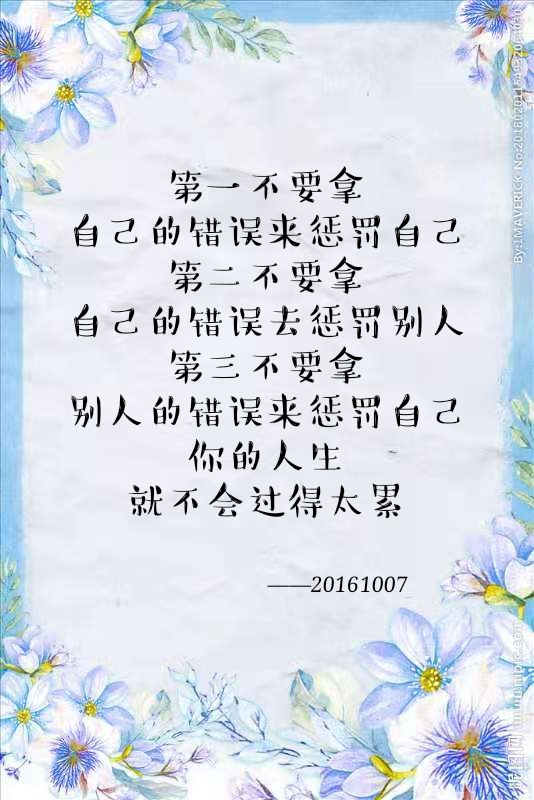 第一不要拿
自己的错误来惩罚自己
第二不要拿
自己的错误去惩罚别人
第三不要拿
别人的错误来惩罚自己
你的人生
就不会过得太累
——20161007